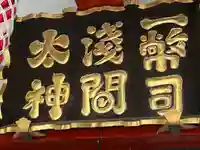 一幣司
淺間
大神